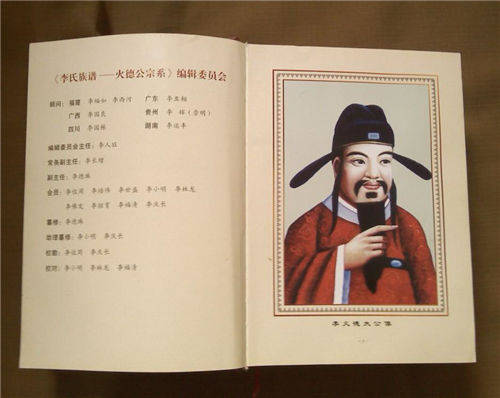 《李氏族谱——火德公宗系》编辑委员会
顾问：福建 李福如 李西河 广东 李
广西 李国良 贵州 李 (黎明)
四川 李国 湖南 李运丰
编辑委员会主任：李人
常务副主任：李长增
副主任：李德
会员：李 李 李世盛 李小明 李林龙
李佛 李 李福清 李庆长
纂修：李德
助理纂修：李小明 李庆长
校勘：李 李庆长
校对：李小明 李林龙 李福清
李火德太公像